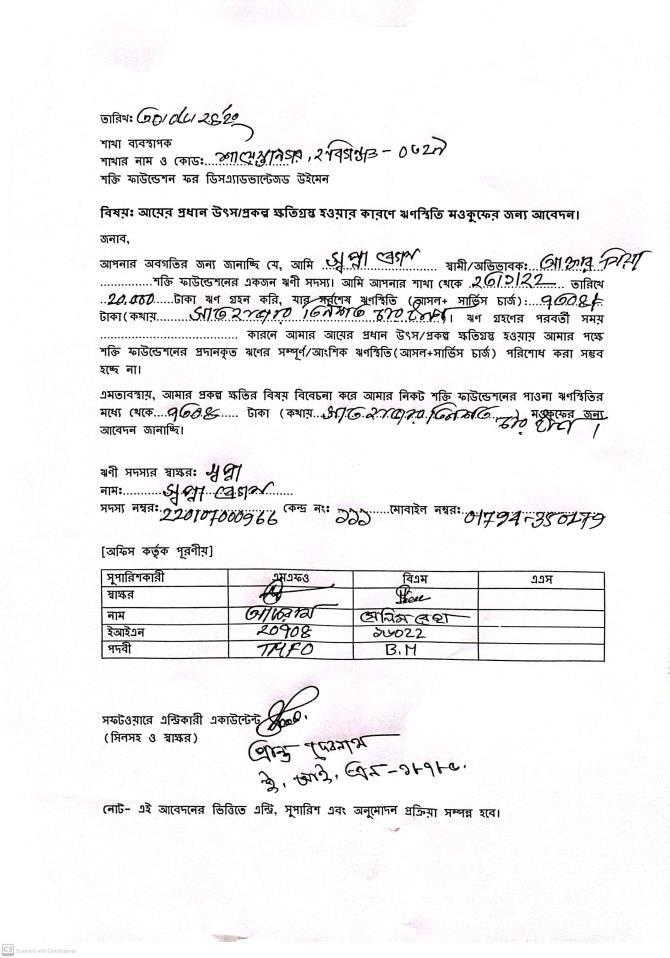 তারিখঃ
শাখা ব্যবস্থাপক
শাখার নাম ও কোডঃ... শায়েস্তানগর, হবিগঞ্জ - ০৩২৭
শক্তি ফাউন্ডেশন ফর ডিসএ্যাডভান্টেজড উইমেন
বিষয়ঃ আয়ের প্রধান উৎস/প্রকল্প ক্ষতিগ্রস্ত হওয়ার কারণে ঋণস্থিতি মওকুফের জন্য আবেদন।
জনাব,
আপনার অবগতির জন্য জানাচ্ছি যে, আমি স্বপ্না বেগম স্বামী/অভিভাবক: আক্তার মিয়া
..............শক্তি ফাউন্ডেশনের একজন ঋণী সদস্য। আমি আপনার শাখা থেকে তারিখে
20,000 টাকা ঋণ গ্রহন করি, যার সর্বশেষ ঋণস্থিতি (আসল+ সার্ভিস চার্জ) : ৭৩০৪
টাকা(কথায় সাত হাজার তিনশত চার টাকা। ঋণ গ্রহণের পরবর্তী সময়
.............................. কারনে আমার আয়ের প্রধান উৎস/প্রকল্প ক্ষতিগ্রস্ত হওয়ায় আমার পক্ষে
শক্তি ফাউন্ডেশনের প্রদানকৃত ঋণের সম্পূর্ণ/আংশিক ঋণস্থিতি(আসল+সার্ভিস চার্জ) পরিশোধ করা সম্ভব
হচ্ছে না।
এমতাবস্থায়, আমার প্রকল্প ক্ষতির বিষয় বিবেচনা করে আমার নিকট শক্তি ফাউন্ডেশনের পাওনা ঋণস্থিতির
মধ্যে থেকে ৭৩০৪ টাকা (কথায় সাত হাজার তিনশত চার মওকুফের জন্য
আবেদন জানাচ্ছি।
ঋণী সদস্যর স্বাক্ষরঃ স্বপ্না
নাম: স্বপ্না বেগম
সদস্য নম্বরঃ 220107000966 কেন্দ্র নং: ১১১ মোবাইল নম্বরঃ 01794-350179
[অফিস কর্তৃক পূরণীয়]
সুপারিশকারী এমএফও বিএম এএস
স্বাক্ষর
নাম
ইআইএন 20908 ১৬০22
পদবী TMFO B.M
সফটওয়ারে এন্ট্রিকারী একাউন্টেন্ট
(সিলসহ ও স্বাক্ষর)
দেবনাথ
ই, আই, এন - ১৮৭৮৫.
নোট- এই আবেদনের ভিত্তিতে এন্ট্রি, সুপারিশ এবং অনুমোদন প্রক্রিয়া সম্পন্ন হবে।
CS Scanned with CamScanner